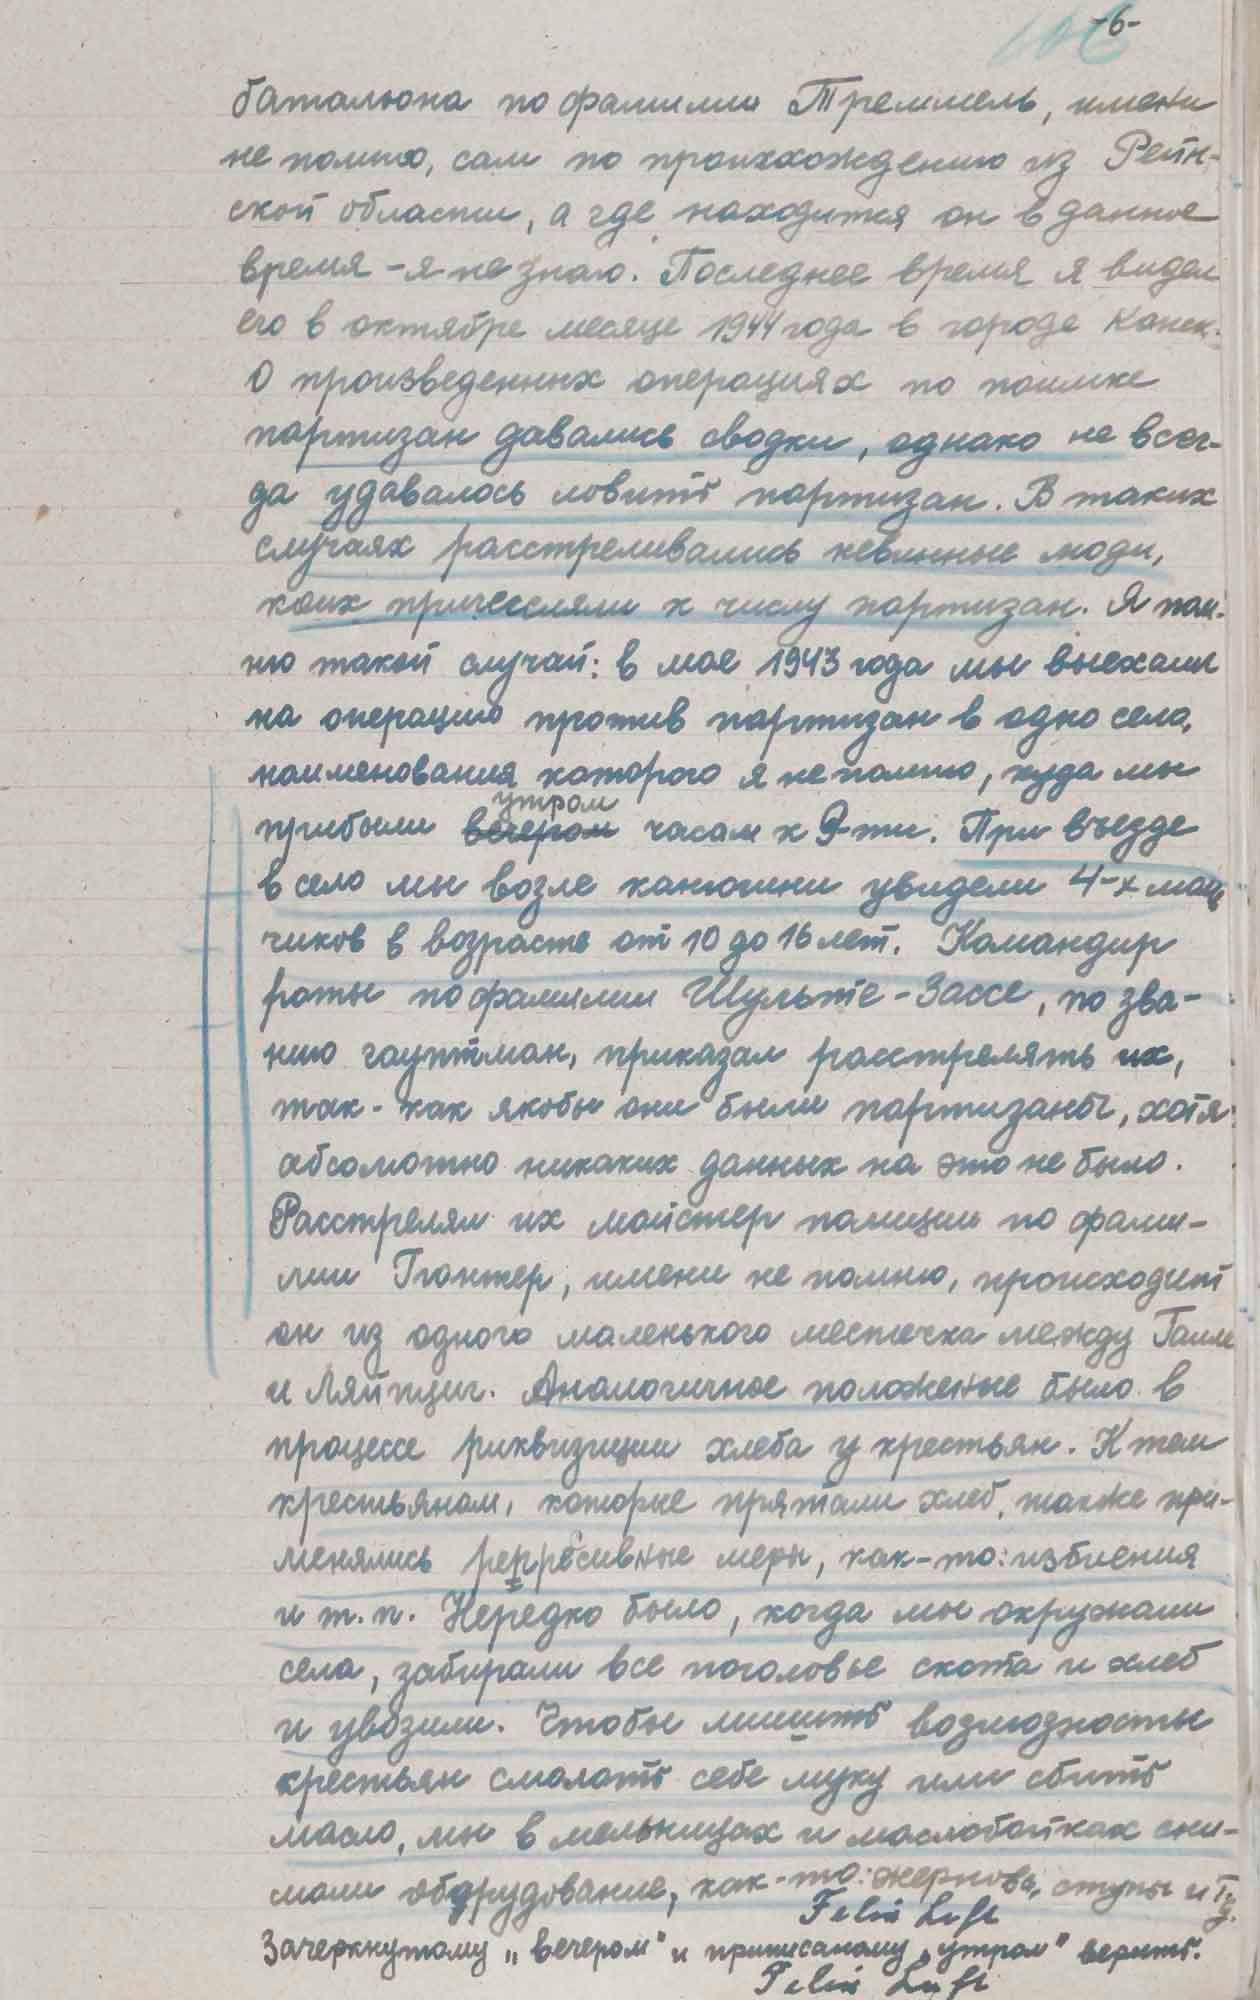 -6-
батальона по фамилии Треммель, имени
не помню, сам по происхождению из Рейн-
ской области, а где находится он в данное
время - я не знаю. Последнее время я видел
его в октябре месяце 1944 года в городе
О произведенных операциях по поимке
партизан давались сводки, однако не всег-
да удавалось ловить партизан. В таких
случаях расстреливались невинные люди,
коих причисляли к числу партизан. Я пом-
ню такой случай: в мае 1943 года мы выехали
на операцию против партизан в одно село,
наименования которого я не помню, куда мы
утром
прибыли вечером часам к 9-ти. При въезде
в село мы возле конюшни увидели 4-х маль
чиков в возрасте от 10 до 16 лет. Командир
роты по фамилии Шульте-Зассе, по зва-
нию гауптман, приказал расстрелять их,
так-как якобы они были партизаны, хотя
абсолютно никаких данных на это не было.
Расстрелял их майстер полиции по фами-
лии Гюнтер, имени не помню, происходит
он из одного маленького местечка между Галле
и Ляйпциг. Аналогичное положение было в
процессе риквизиции хлеба у крестьян. К тем
крестьянам, которые прятали хлеб, также при-
менялись репресивные меры, как-то: избиения
и т.п. Нередко было, когда мы окружали
села, забирали все поголовье скота и хлеб
и увозили. Чтобы лишить возможности
крестьян смолоть себе муку или сбить
масло, мы в мельницах и маслобойках сни-
мали оборудование, как-то: жернова, ступы и т.д.
Felix Luft
Зачеркнутому „вечером" и приписаному „утром" верить.
Felix Luft